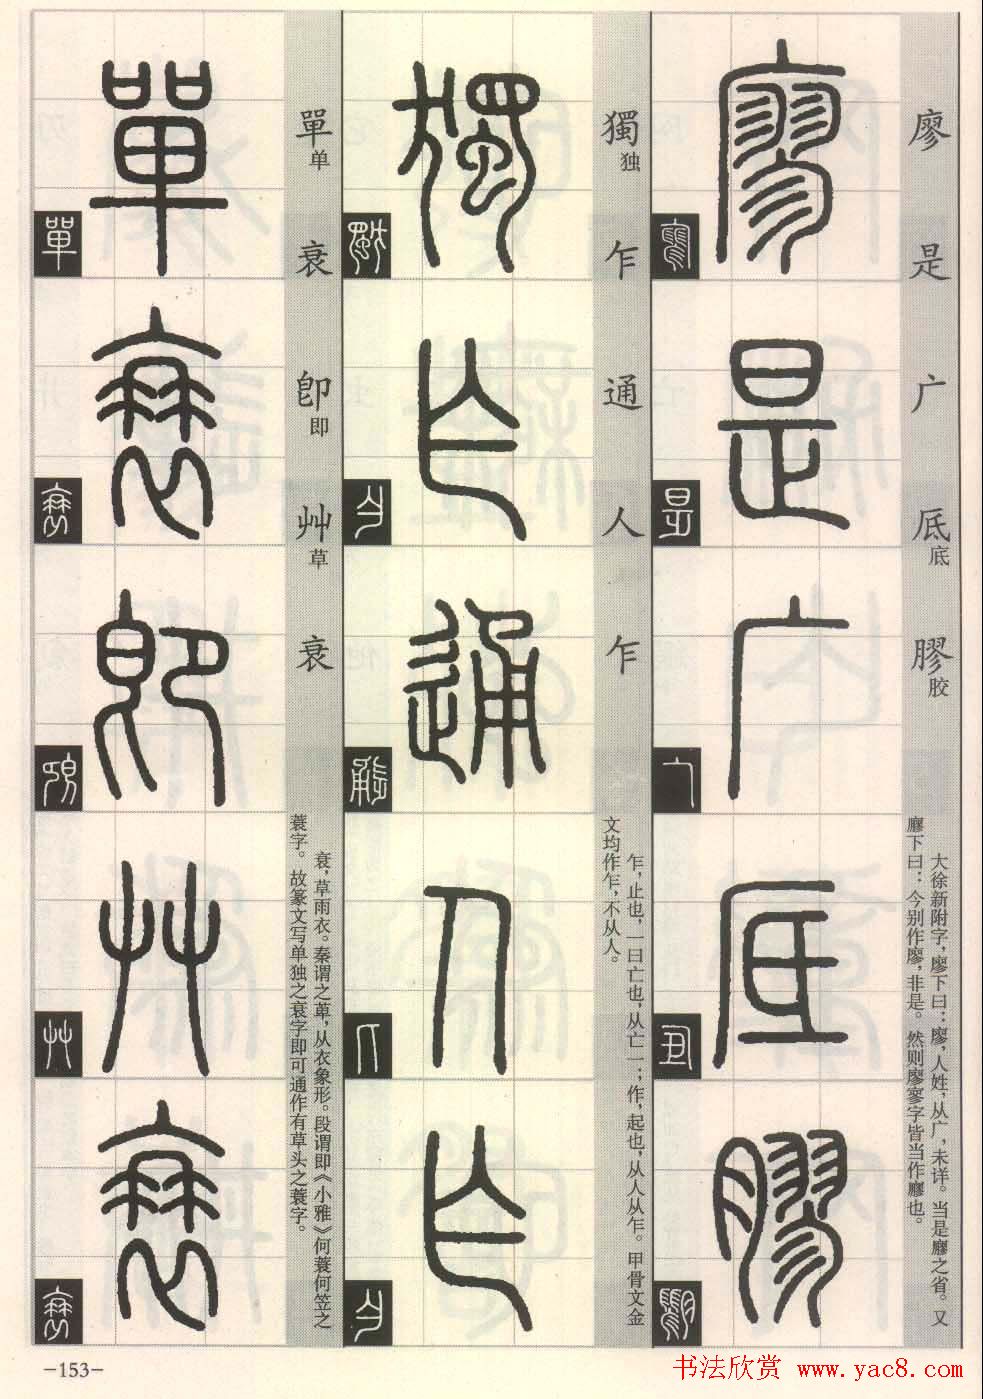 廖 是 广 底底 膠胶
大徐新附字，廖下曰：廖，人姓，从广，未详。当是廫之省。又
廫下曰：今别作廖，非是。然则廖寥字皆当作廫也。
獨独 乍 通 人 乍
乍，止也，一曰亡也，从亡一；作，起也，从人从乍。甲骨文金
文均作乍，不从人。
單单 衰 卽即 艸草 衰
衰，草雨衣。秦谓之萆，从衣象形。段谓即《小雅》何蓑何笠之
蓑字。故篆文写单独之衰字即可通作有草头之蓑字。
-153-
书法欣赏 www.yac8.com